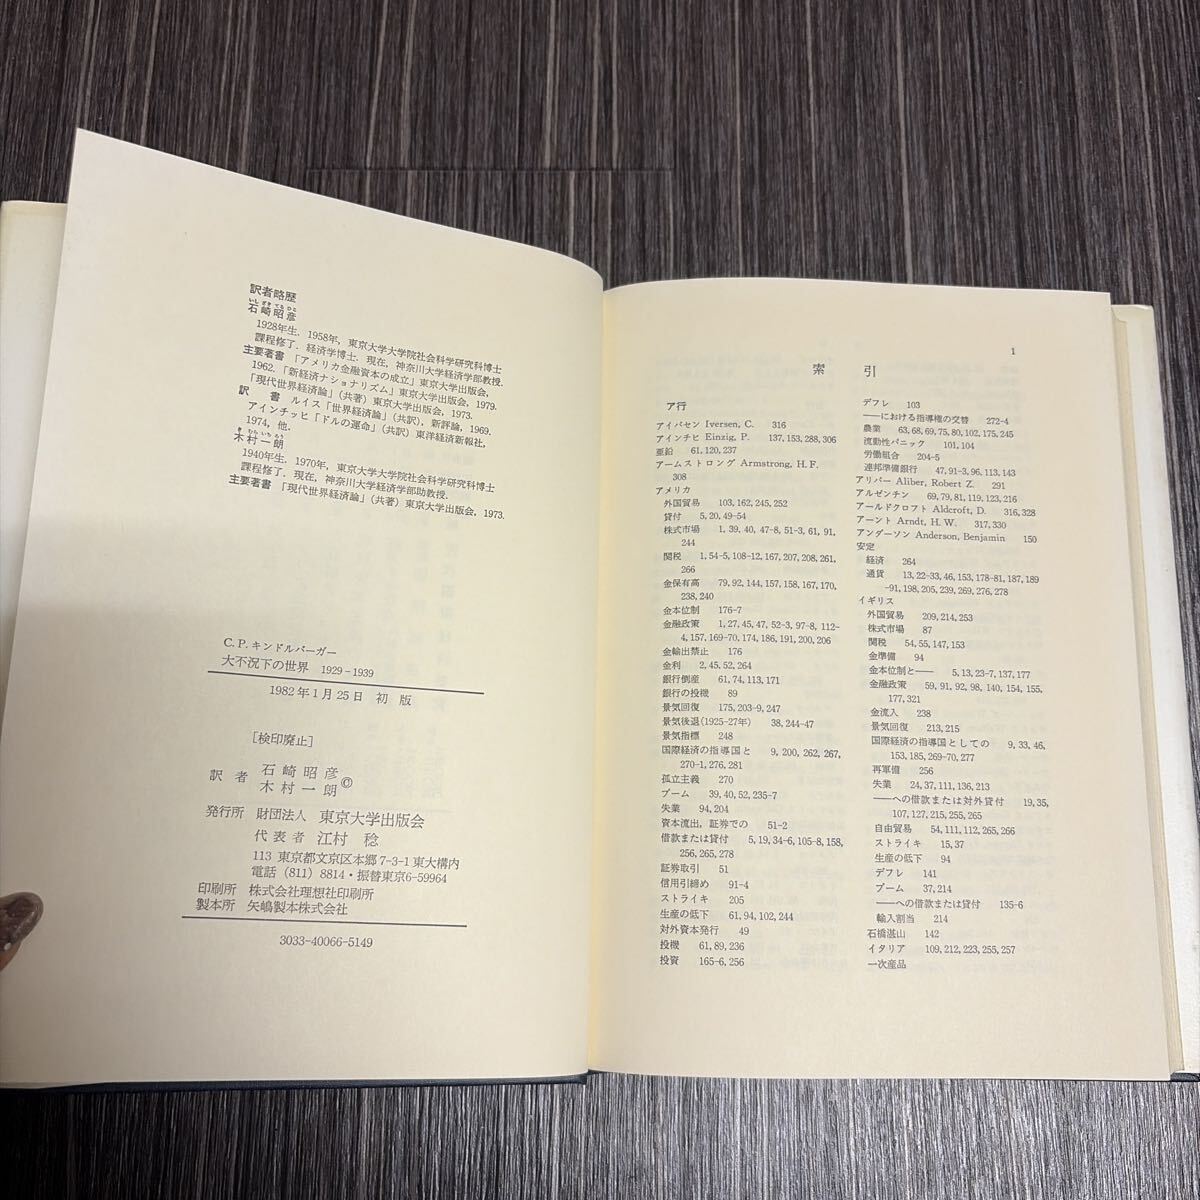 訳者略歴
いし ざき てる ひこ
石崎昭彦
1928年生．1958年，東京大学大学院社会科学研究科博士
課程修了．経済学博士．現在，神奈川大学経済学部教授．
主要著書 「アメリカ金融資本の成立」東京大学出版会，
1962．「新経済ナショナリズム」東京大学出版会，1979．
「現代世界経済論」（共著）東京大学出版会，1973．
訳 書 ルイス「世界経済論」（共訳），新評論，1969．
アインチッヒ「ドルの運命」（共訳）東洋経済新報社，
1974，他．
き むら いち ろう
木村一朗
1940年生．1970年，東京大学大学院社会科学研究科博士
課程修了．現在，神奈川大学経済学部助教授．
主要著書 「現代世界経済論」（共著）東京大学出版会，1973．
C. P. キンドルバーガー
大不況下の世界 1929－1939
1982年1月25日 初 版
［検印廃止］
訳 者 石崎昭彦
木村一朗 ©
発行所 財団法人 東京大学出版会
代表者 江村 稔
113 東京都文京区本郷 7-3-1 東大構内
電話（811）8814・振替東京6-59964
印刷所 株式会社理想社印刷所
製本所 矢嶋製本株式会社
3033-40066-5149
1
索 引
ア行
アイバセン Iversen, C. 316
アインチヒ Einzig, P. 137, 153, 288, 306
亜鉛 61, 120, 237
アームストロング Armstrong, H. F.
308
アメリカ
外国貿易 103, 162, 245, 252
貸付 5, 20, 49-54
株式市場 1, 39, 40, 47-8, 51-3, 61, 91,
244
関税 1, 54-5, 108-12, 167, 207, 208, 261,
266
金保有高 79, 92, 144, 157, 158, 167, 170,
238, 240
金本位制 176-7
金融政策 1, 27, 45, 47, 52-3, 97-8, 112-
4, 157, 169-70, 174, 186, 191, 200, 206
金輸出禁止 176
金利 2, 45, 52, 264
銀行倒産 61, 74, 113, 171
銀行の投機 89
景気回復 175, 203-9, 247
景気後退（1925-27年） 38, 244-47
景気指標 248
国際経済の指導国と 9, 200, 262, 267,
270-1, 276, 281
孤立主義 270
ブーム 39, 40, 52, 235-7
失業 94, 204
資本流出，証券での 51-2
借款または貸付 5, 19, 34-6, 105-8, 158,
256, 265, 278
証券取引 51
信用引締め 91-4
ストライキ 205
生産の低下 61, 94, 102, 244
対外資本発行 49
投機 61, 89, 236
投資 165-6, 256
デフレ 103
──における指導権の交替 272-4
農業 63, 68, 69, 75, 80, 102, 175, 245
流動性パニック 101, 104
労働組合 204-5
連邦準備銀行 47, 91-3, 96, 113, 143
アリバー Aliber, Robert Z. 291
アルゼンチン 69, 79, 81, 119, 123, 216
アールドクロフト Aldcroft, D. 316, 328
アーント Arndt, H. W. 317, 330
アンダーソン Anderson, Benjamin 150
安定
経済 264
通貨 13, 22-33, 46, 153, 178-81, 187, 189
-91, 198, 205, 239, 269, 276, 278
イギリス
外国貿易 209, 214, 253
株式市場 87
関税 54, 55, 147, 153
金準備 94
金本位制と── 5, 13, 23-7, 137, 177
金融政策 59, 91, 92, 98, 140, 154, 155,
177, 321
金流入 238
景気回復 213, 215
国際経済の指導国としての 9, 33, 46,
153, 185, 269-70, 277
再軍備 256
失業 24, 37, 111, 136, 213
──への借款または対外貸付 19, 35,
107, 127, 215, 255, 265
自由貿易 54, 111, 112, 265, 266
ストライキ 15, 37
生産の低下 94
デフレ 141
ブーム 37, 214
──への借款または貸付 135-6
輸入割当 214
石橋湛山 142
イタリア 109, 212, 223, 255, 257
一次産品